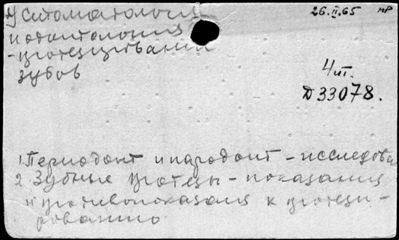 Устоматология
и одонтология
- протезирвании
зубов
26.II.65 пр
4ит.
Д33078.
1 Периодонт и пародонт - исследова
2 Зубные протезы - показания
и противопоказан к протези-
рованию